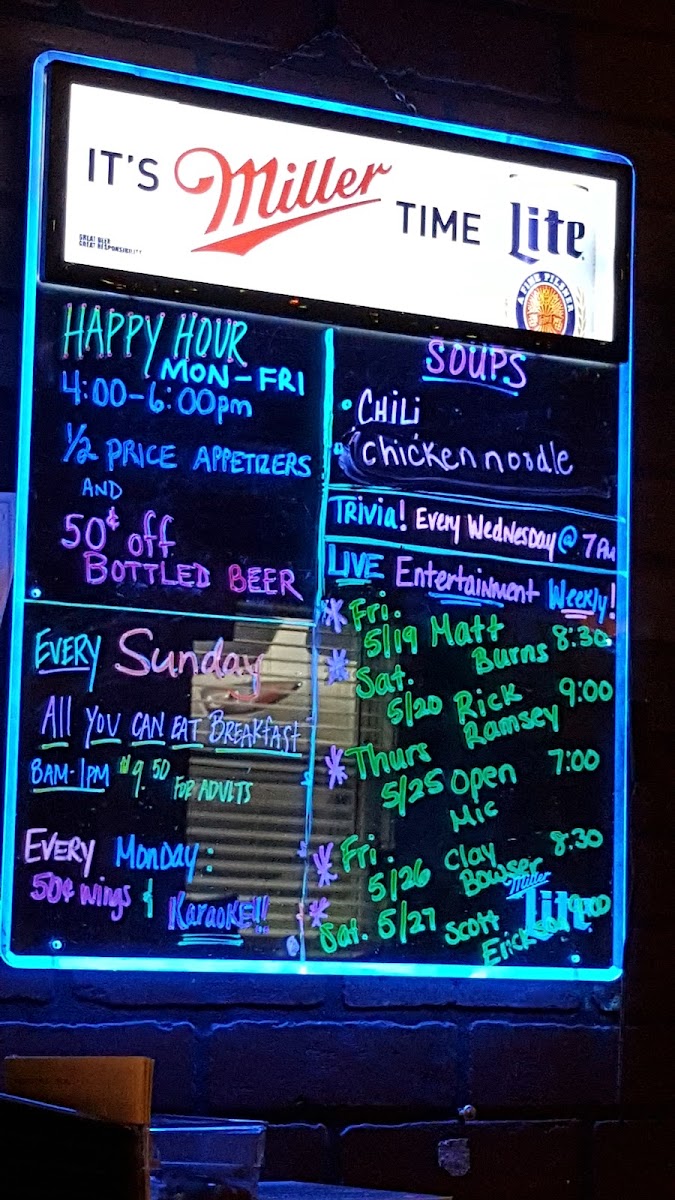 IT'S Miller TIME Lite
GREAT BEER
GREAT RESPONSIBILITY
A FINE PILSNER
HAPPY HOUR
MON-FRI
4:00-6:00pm
1/2 PRICE APPETIZERS
AND
50¢ off
BOTTLED BEER
EVERY Sunday
All YOU CAN EAT BREAKFAST
8AM-1PM $9.50 FOR ADULTS
EVERY Monday:
50¢ wings & KARAOKE!!
SOUPS
• CHILI
• chicken noodle
TRIVIA! Every Wednesday @ 7PM
LIVE Entertainment Weekly!
* Fri. 5/19 Matt Burns 8:30
* Sat. 5/20 Rick Ramsey 9:00
* Thurs 5/25 Open Mic 7:00
* Fri. 5/26 Clay Bowser 8:30
* Sat. 5/27 Scott Erickson 9:00
Miller
Lite